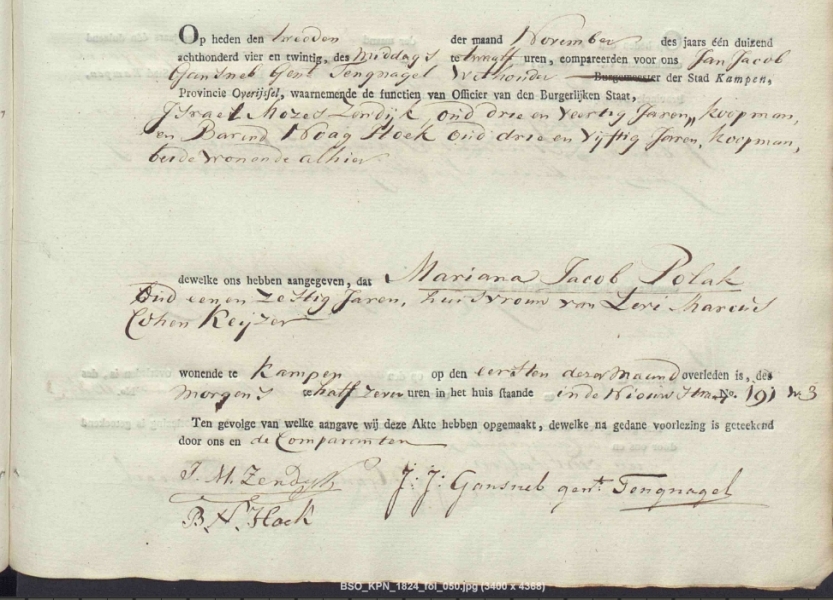 Op heden den tweeden der maand November des jaars één duizend
achthonderd vier en twintig, des Middags te twaalf uren, compareerden voor ons Jan Jacob
Gansneb Gent Tengnagel Wethouder Burgemeester der Stad Kampen,
Provincie Overijssel, waarnemende de functien van Officier van den Burgerlijken Staat,
Israel Mozes Zendijk, oud drie en veertig Jaren, Koopman,
en Barend Noag Hoek oud drie en Vijftig Jaren, Koopman,
beide wonende alhier
dewelke ons hebben aangegeven, dat Mariana Jacob Polak
Oud een en Zestig Jaren, huisvrouw van Levi Marcus
Cohen Keyzer
wonende te Kampen op den eersten dezer Maand overleden is, des
Morgens te half zeven uren in het huis staande in de Nieuwstraat No. 191 W 3
Ten gevolge van welke aangave wij deze Akte hebben opgemaakt, dewelke na gedane voorlezing is geteekend
door ons en de Comparenten
I. M. Zendijk J: J: Gansneb gent Tengnagel
B N Hoek
BSO_KPN_1824_fol_050.jpg (3400 x 4368)